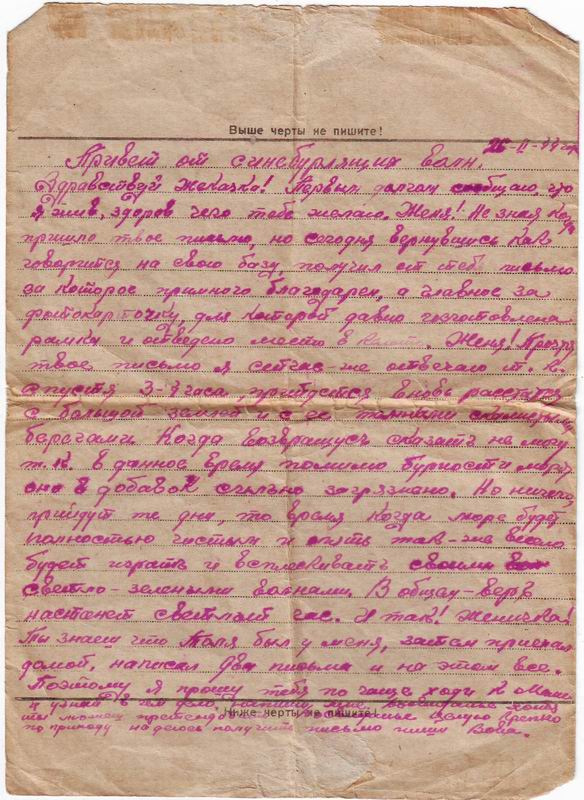 Выше черты не пишите!
26-II-44 г.
Привет от синебурлящих волн.
Здравствуй Жекачка! Первым долгом сообщаю, что
я жив, здоров чего тебе желаю. Женя! Не зная когда
пришло твое письмо, но сегодня вернувшись как
говорится на свою базу, получил от тебя письмо
за которое премного благодарен, а главное за
фотокарточку, для которой давно изготовлена
рамка и отведено место в. Женя! Прочтя
твое письмо я сейчас-же отвечаю т. к.
спустя 3-4 часа, придется вновь расстаться
с большой землей и с ее
берегами. Когда возвращусь сказать не могу
т. к. в данное время помимо бурности моря
оно в добавок сильно загрязнено. Но ничего
придут те дни, то время когда море будет
полностью чистым и опять так-же весело
будет играть и всплескивать своими
светло-зелеными волнами. В общем-верь
настанет светлый час. И так! Женичка!
Ты знаешь что Толя был у меня, затем приехал
домой, написал два письма и на этом все.
Поэтому я прошу тебя по чаще ходи к Маме
и узнай в чем дело, напиши мне. хотя
ты можешь Целую крепко
Ниже черты не пишите!
по приходу надеюсь получить письмо пиши Вова.